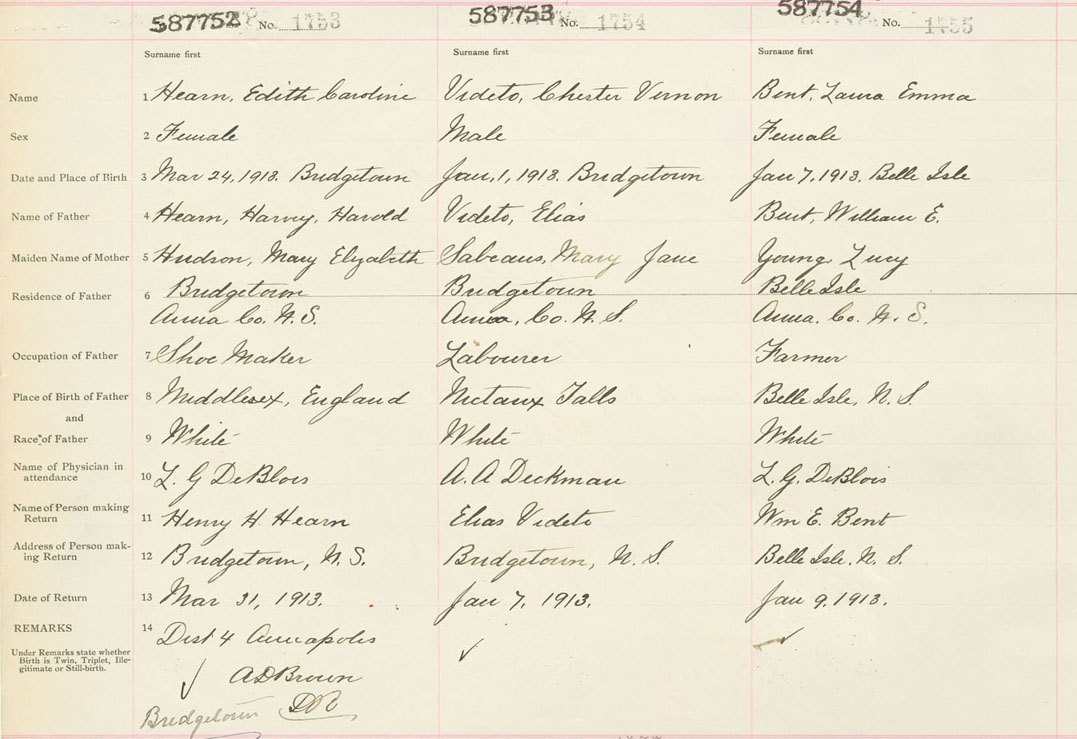 587752 No. 1753 587753 No. 1754 587754 No. 1755
Surname first Surname first Surname first
Name 1 Hearn, Edith Caroline Videto, Chester Vernon Bent, Laura Emma
Sex 2 Female Male Female
Date and Place of Birth 3 Mar 24, 1913. Bridgetown Jan, 1, 1913. Bridgetown Jan 7, 1913. Belle Isle
Name of Father 4 Hearn, Harvey, Harold Videto, Elias Bent, William E.
Maiden Name of Mother 5 Hudson, Mary Elizabeth Sabeans, Mary Jane Young, Lucy
Residence of Father 6 Bridgetown Bridgetown Belle Isle
Anna Co. N. S. Anna, Co. N. S. Anna. Co. N. S.
Occupation of Father 7 Shoe Maker Labourer Farmer
Place of Birth of Father 8 Middlesex, England Nictaux Falls Belle Isle, N. S.
and
Race of Father 9 White White White
Name of Physician in
attendance 10 L. G DeBlois A. A Deckman L. G. DeBlois
Name of Person making
Return 11 Henry H. Hearn Elias Videto Wm E. Bent
Address of Person mak-
ing Return 12 Bridgetown, N. S. Bridgetown, N. S. Belle Isle. N. S.
Date of Return 13 Mar 31, 1913. Jan 7, 1913. Jan 9, 1913.
REMARKS 14 Dist 4 Annapolis
Under Remarks state whether
Birth is Twin, Triplet, Ille-
gitimate or Still-birth.
A D Brown
D R
Bridgetown